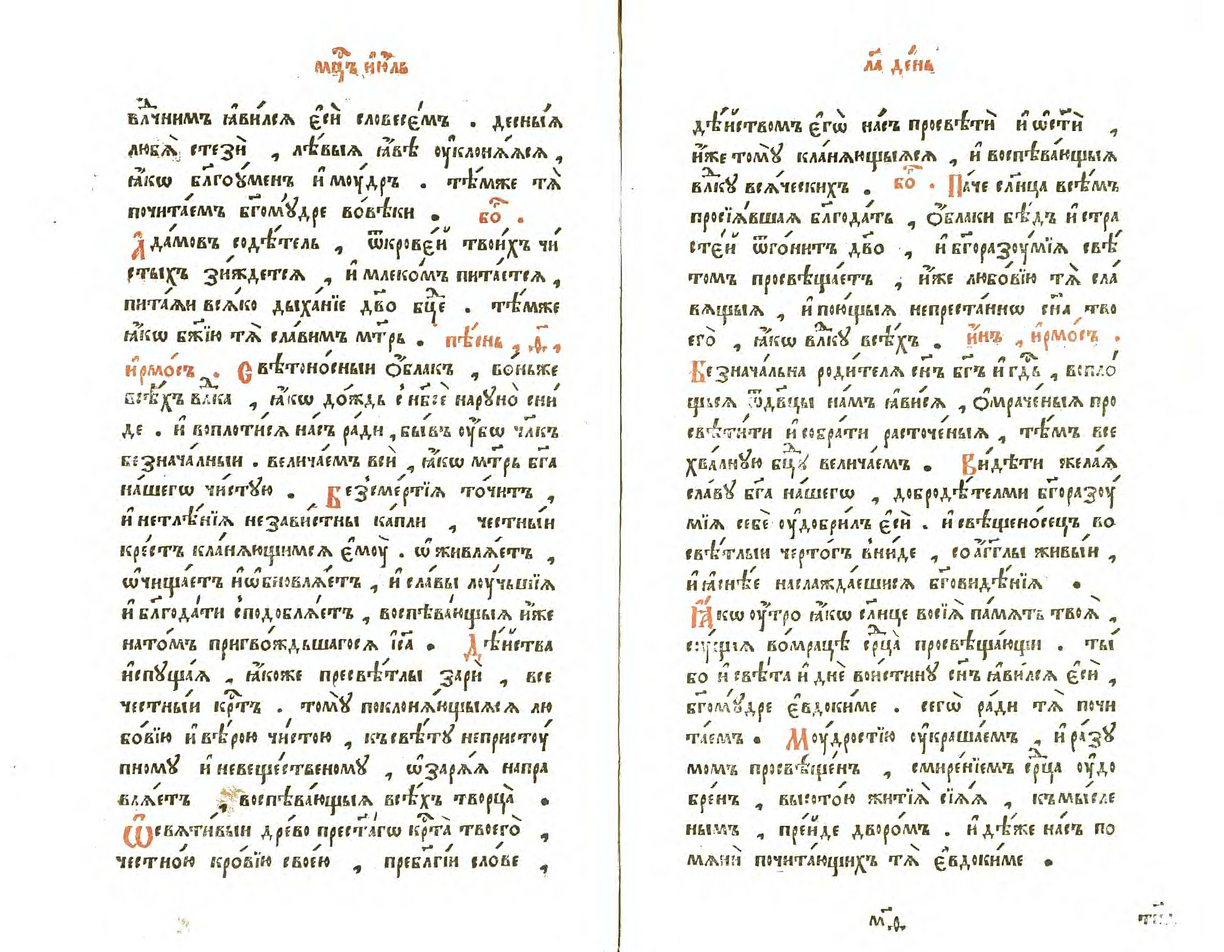 мц҃ъ і҆ю҆́ль
вл҃чнимъ ꙗ҆ви́лсѧ є҆сѝ словесе́мъ . десны́ѧ
любѧ̀ стезѝ , лѣ́выѧ ꙗ҆́вѣ оу҆клонѧ́ѧсѧ ,
ꙗ҆́кѡ бл҃гоу́менъ и҆ моу́дръ . тѣ́мже тѧ̀
почита́емъ бг҃ому́дре во́вѣки . бо҃ .
А҆да́мовъ содѣ́тель , ѿкрове́й твои́хъ чи́
стыхъ зи́ждетсѧ , и҆ млеко́мъ пита́етсѧ ,
пита́ѧи всѧ́ко дыха́нїе дв҃о бц҃е . тѣ́мже
ꙗ҆́кѡ бж҃їю тѧ̀ сла́вимъ мт҃рь . пѣ́снь , ѳ҃ ,
і҆рмо́съ . Свѣтоно́сныи ѻ҆́блакъ , во́ньже
всѣ́хъ влк҃а , ꙗ҆́кѡ до́ждь с нб҃сѐ наруно̀ сни́
де . и҆ воплоти́сѧ на́съ ра́ди , бы́въ оу҆́бѡ чл҃къ
безнача́лныи . велича́емъ всѝ , ꙗ҆́кѡ мт҃рь бг҃а
на́шегѡ чи́стую . Безсме́ртїѧ то́читъ ,
и҆ нетлѣ́нїѧ незави́стны ка́пли , честны́и
кре́стъ кла́нѧющимсѧ є҆моу̀ . ѡ҆живлѧ́етъ ,
ѡ҆чища́етъ и҆ ѡ҆бновлѧ́етъ , и҆ сла́вы лоу́чьшїѧ
и҆ бл҃года́ти сподоблѧ́етъ , воспѣва́ющыѧ и҆́же
нато́мъ пригвожд́ьшагосѧ і҆с҃а . Дѣ́йства
и҆спуща́ѧ , ꙗ҆́коже пресвѣ́тлы зарѝ , все
честны́и кр҃тъ . тому̀ поклонѧ́ющыѧсѧ лю
бо́вїю и҆ вѣ́рою чи́стою , къ свѣ́ту непристоу́
пному и҆ невеще́ственому , ѡ҆зарѧ́ѧ напра
влѧ́етъ , воспѣва́ющыѧ всѣ́хъ творца̀ .
Ѡ҆свѧти́выи дре́во прест҃а́гѡ кр҃та̀ твоегѡ̀ ,
честно́ю кро́вїю свое́ю , пребл҃гі́и сло́ве ,
л҃а де́нь
дѣ́йствомъ є҆гѡ̀ на́съ просвѣтѝ и҆ ѡ҆ст҃ѝ ,
и҆́же тому̀ кла́нѧющыѧсѧ , и҆ воспѣва́ющыѧ
влк҃у всѧ́ческихъ . бо҃ . Па́че сл҃нца всѣ́мъ
просїѧ́вшаѧ бл҃года́ть , ѻ҆́блаки бѣ́дъ и҆ стра
сте́й ѿго́нитъ дв҃о , и҆ бг҃оразоу́мїѧ свѣ́
томъ просвѣща́етъ , и҆́же любо́вїю тѧ̀ сла́
вѧщыѧ , и҆ пою́щыѧ непреста́ннѡ сн҃а тво
его̀ , ꙗ҆́кѡ влк҃у всѣ́хъ . и҆́нъ , і҆рмо́съ .
Безнача́льна роди́телѧ сн҃ъ бг҃ъ и҆ гд҃ь , вопло́
щьсѧ ѿ дв҃цы на́мъ ꙗ҆ви́сѧ , ѻ҆мраче́ныѧ про
свѣти́ти и҆ собра́ти расточе́ныѧ , тѣ́мъ все
хва́лную бц҃у велича́емъ . Ви́дѣти жела́ѧ
сла́ву бг҃а на́шегѡ , добродѣ́телми бг҃оразоу́
мїѧ себѐ оу҆до́брилъ є҆сѝ . и҆ свѣщено́сецъ во
свѣ́тлыи черто́гъ вни́де , со а҆́гг҃лы живы́и ,
и҆ ꙗ҆́снѣе наслажда́ешисѧ бг҃ови́дѣнїѧ .
Ꙗ҆́кѡ оу҆́тро ꙗ҆́кѡ сл҃нце восїѧ̀ па́мѧть твоѧ̀ ,
су́щыѧ во́мрацѣ ср҃ца̀ просвѣща́ющи . ты́
бо и҆ свѣ́та и҆ днѐ вои́стину сн҃ъ ꙗ҆ви́лсѧ є҆сѝ ,
бг҃ому́дре є҆вдоки́ме . сегѡ̀ ра́ди тѧ̀ почи
та́емъ . Моу́дростїю оу҆краша́емъ , и҆ ра́зу
момъ просвѣще́нъ , смире́нїемъ ср҃ца оу҆до́
бре́нъ , высото́ю житїѧ̀ сїѧ́ѧ , къ мы́сле
нымъ , пре́йде дворо́мъ . и҆дѣ́же на́съ по
мѧнѝ почита́ющихъ тѧ̀ є҆вдоки́ме .
м҃ѳ